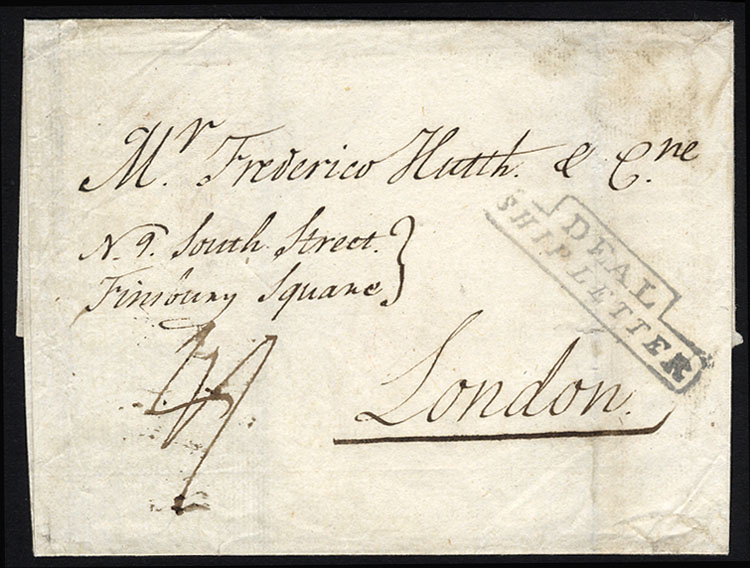 Mr. Frederico Hutth. & Cne
N. 9. South Street.
Finsbury Square
London.
DEAL
SHIP LETTER